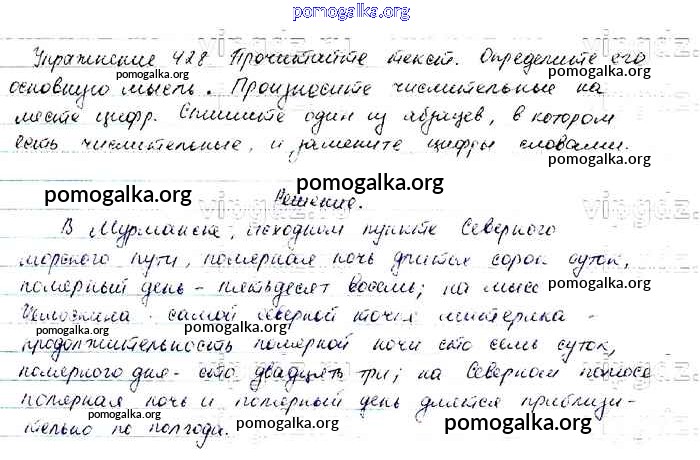 pomogalka.org
Упражнение 428 Прочитайте текст. Определите его
pomogalka.org pomogalka.org
основную мысль. Произносите числительные на
pomogalka.org
месте цифр. Спишите один из абзацев, в котором
pomogalka.org
есть числительные, и замените цифры словами.
pomogalka.org pomogalka.org
Решение.
В Мурманске, исходном пункте Северного
морского пути, полярная ночь длится сорок суток,
pomogalka.org
полярный день - пятьдесят восемь; на мысе
pomogalka.org
Челюскина - самой северной точке материка -
pomogalka.org
продолжительность полярной ночи сто семь суток,
pomogalka.org
полярного дня - сто двадцать три; на Северном полюсе
pomogalka.org
полярная ночь и полярный день длятся приблизи-
pomogalka.org pomogalka.org
тельно по полгода.